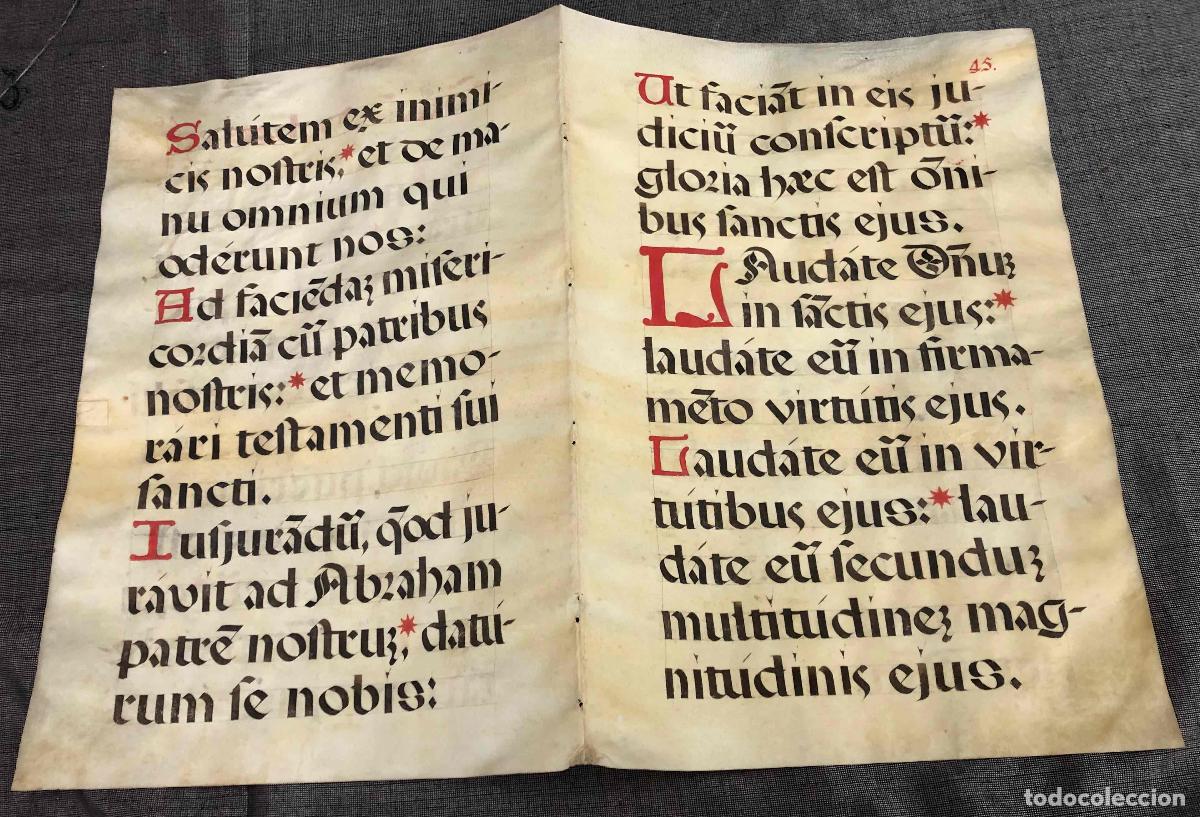 Salútem ex inimi-
cis noſtris, * et de ma-
nu omnium qui
odérunt nos:
Ad faciẽdaꝫ miſeri-
cordiã cũ patribus
noſtris: * et memo-
rári teſtamenti ſui
ſancti.
Iuſjurãdũ, q̃od ju-
rávit ad Abraham
patrẽ noſtruꝫ, * datú-
rum ſe nobis:
45.
Ut faciãt in eis ju-
diciũ conſcriptũ: *
gloria hæc eſt õni-
bus ſanctis ejus.
LAudáte Dñuꝫ
in ſãctis ejus: *
laudáte eũ in firma-
mẽto virtútis ejus.
Laudáte eũ in vir-
tútibus ejus: * lau-
dáte eũ ſecunduꝫ
multitúdineꝫ mag-
nitúdinis ejus.
todocoleccion